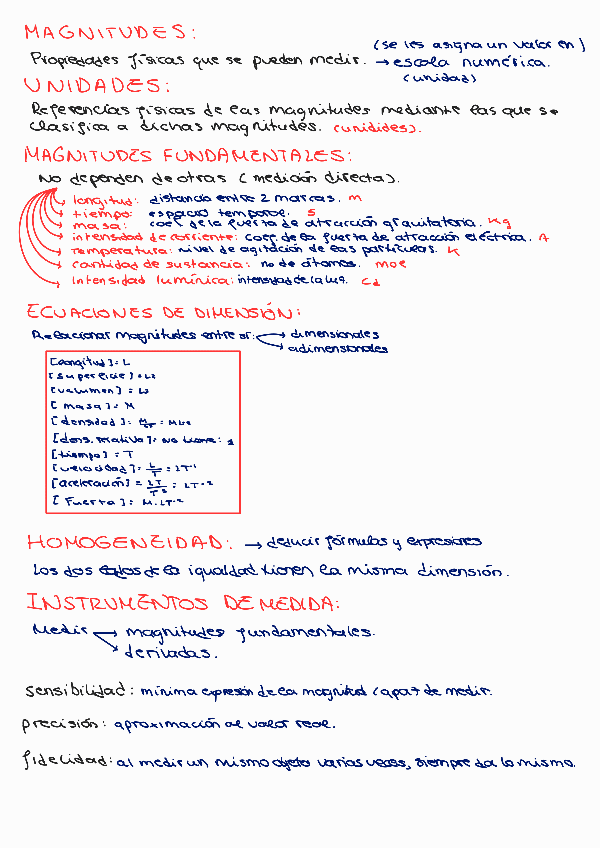 MAGNITUDES:
Propiedades físicas que se pueden medir. → (se les asigna un valor en)
escala numérica.
(unidad)
UNIDADES:
Referencias físicas de las magnitudes mediante las que se
clasifica a dichas magnitudes. (unidides).
MAGNITUDES FUNDAMENTALES:
No dependen de otras (medición directa).
longitud: distancia entre 2 marcas. m
tiempo: espacio temporal. s
masa: coef. de la fuerza de atracción gravitatoria. Kg
intensidad de corriente: coef. de la fuerza de atracción eléctrica. A
Temperatura: nivel de agitación de las partículas. K
cantidad de sustancia: no de átomos. mol
Intensidad lumínica: intensidad de la luz. Cd
ECUACIONES DE DIMENSIÓN:
Relacionar magnitudes entre sí: → dimensionales
→ adimensionales
[Longitud] = L
[superficie] = L2
[volumen] = L3
[masa] = M
[densidad] =
[dens. relativa] = no tiene: 1
[tiempo] = T
[velocidad] = L/T = LT-1
[aceleración] = = LT-2
[Fuerza] = M.LT-2
HOMOGENEIDAD: → deducir fórmulas y expresiones
Los dos lados de la igualdad tienen la misma dimensión.
INSTRUMENTOS DE MEDIDA:
Medir → magnitudes fundamentales.
→ derivadas.
sensibilidad: mínima expresión de la magnitud capaz de medir.
precisión: aproximación al valor real.
fidelidad: al medir un mismo objeto varias veces, siempre da lo mismo.